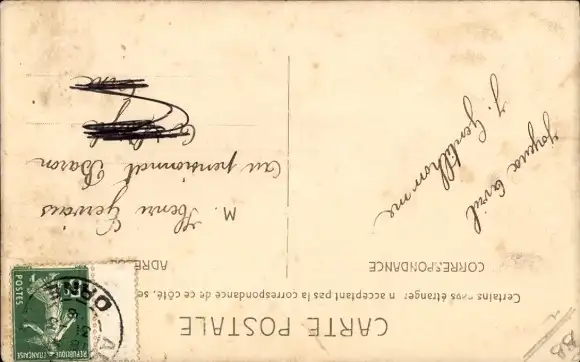 CARTE POSTALE
Certains pays étrangers n'acceptant pas la correspondance de ce côté, se
CORRESPONDANCE
ADRE
Joyeux Avril
J. Gentilhomme
M. Henri Gervais
au pensionnat Baron
Orne
RÉPUBLIQUE FRANÇAISE
POSTES
ORNE